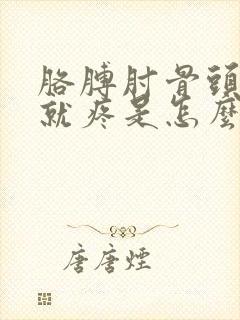 胳膊肘骨頭
就疼是怎麼
唐唐煙